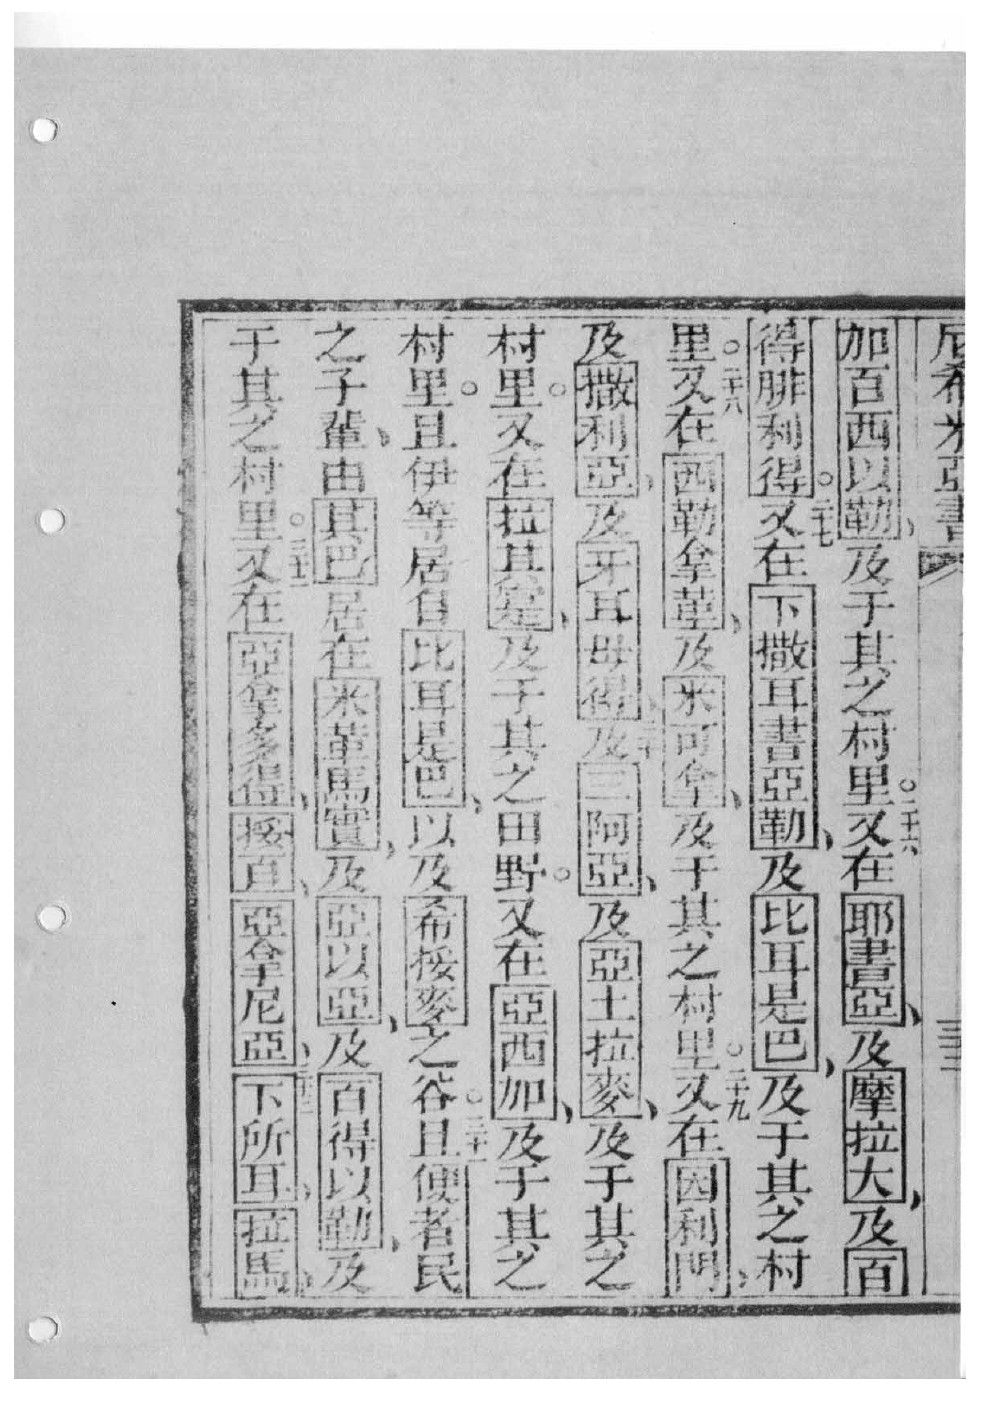 尼希米亞書
加百西以勒、及于其之村里。二十六又在耶書亞、及摩拉大、及百
得腓利得。二十七又在下撒耳書亞勒、及比耳是巴、及于其之村
里。二十八又在西勒拿革、及米可拿、及于其之村里。二十九又在因利門、
及撒利亞、及牙耳母得、三十及三阿亞、及亞土拉麥、及于其之
村里。又在拉其是、及于其之田野。又在亞西加、及于其之
村里。且伊等居自比耳是巴、以及希挼麥之谷。三十一且便者民
之子輩、由其巴居在米革馬實、及亞以亞、及百得以勒、及
于其之村里。三十二又在亞拿多得、挼直、亞拿尼亞、三十三下所耳、拉馬、